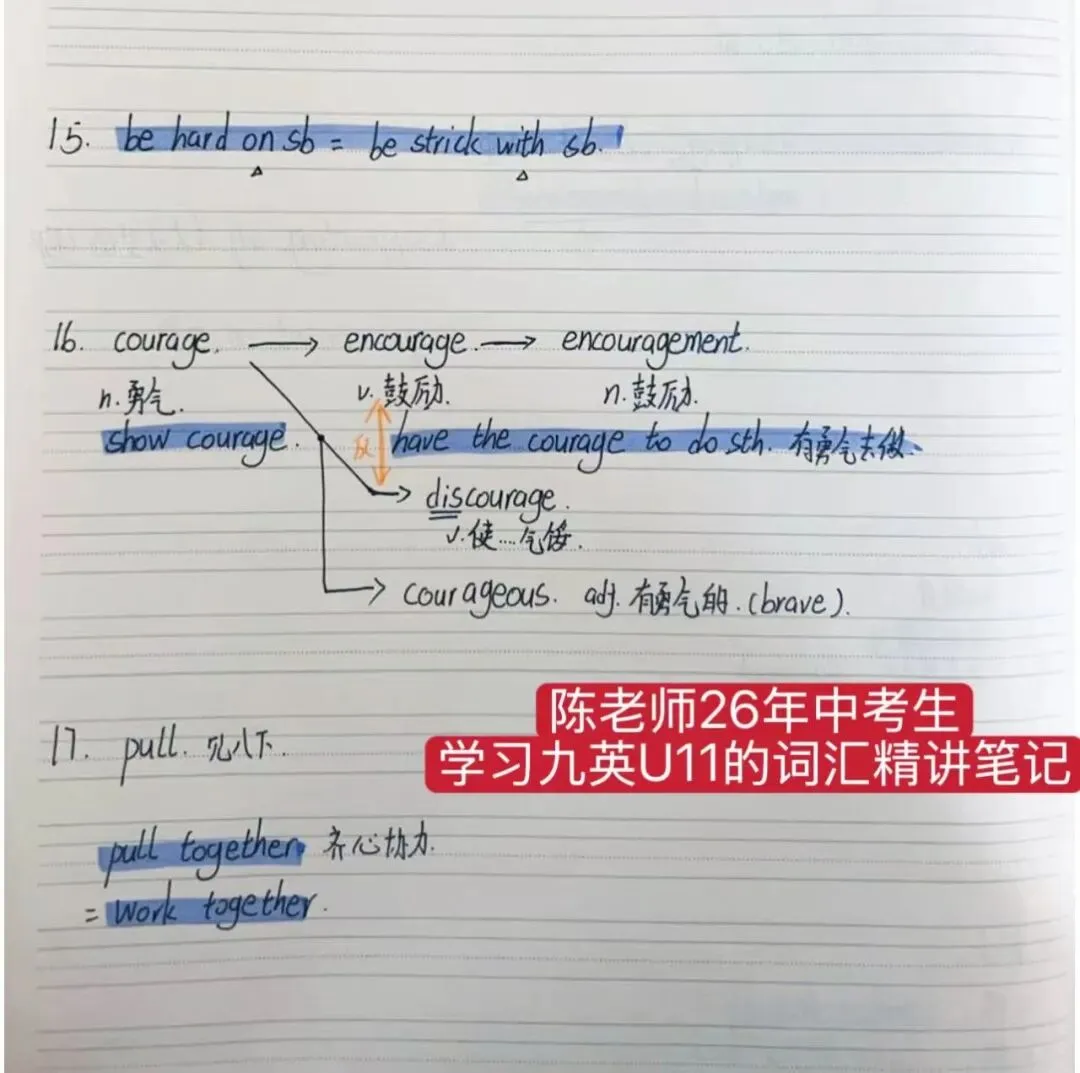 15. be hard on sb = be strick with sb.
16. courage. → encourage. → encouragement.
n. 勇气. v. 鼓励. n. 鼓励.
show courage. 反 have the courage to do sth. 有勇气去做.
discourage.
v. 使...气馁.
courageous. adj. 有勇气的. (brave).
陈老师26年中考生
学习九英U11的词汇精讲笔记
17. pull. 见八下.
pull together. 齐心协力.
= work together.